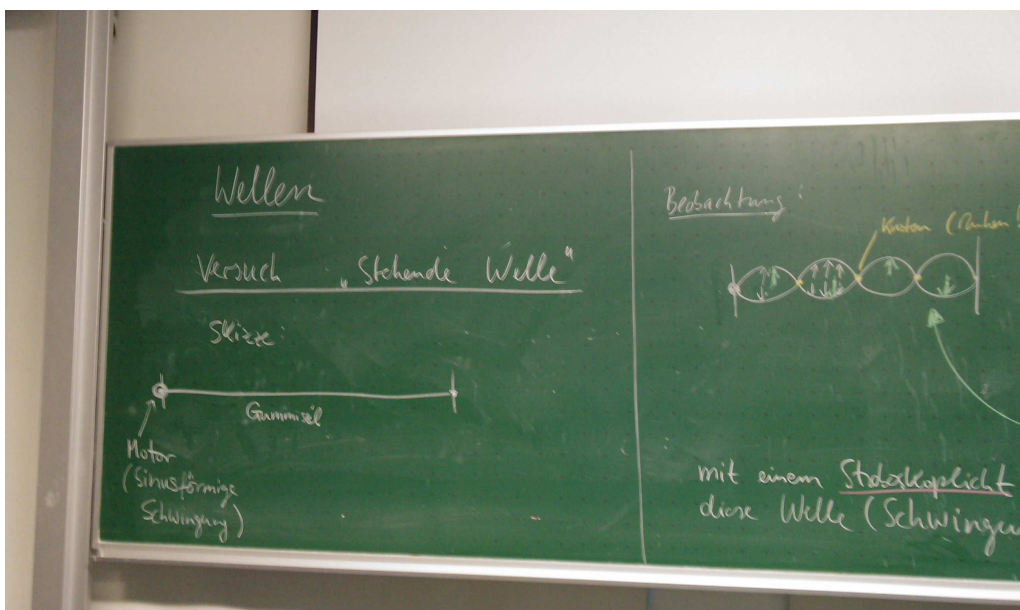 Wellen
Versuch „Stehende Welle"
Skizze:
Gummiseil
Motor
(Sinusförmige
Schwingung)
Beobachtung:
Knoten
mit einem Stroboskoplicht
diese Welle (Schwingun